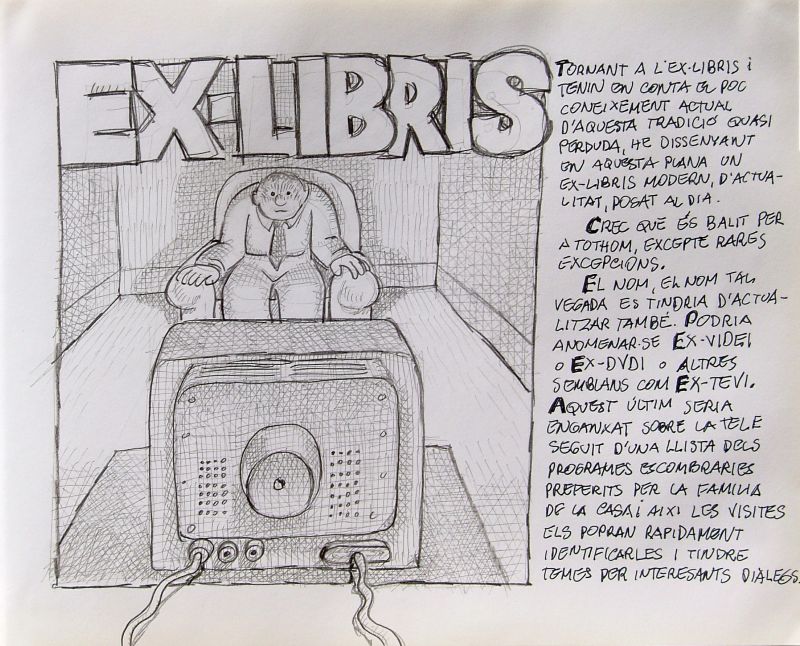 EX-LIBRIS
TORNANT A L'EX-LIBRIS i
TENIN EN CONTA EL POC
CONEIXEMENT ACTUAL
D'AQUESTA TRADICIÓ QUASI
PERDUDA, HE DISSENYANT
EN AQUESTA PLANA UN
EX-LIBRIS MODERN, D'ACTUA-
LITAT, POSAT AL DIA.
CREC QUE ÉS BALIT PER
A TOTHOM, EXCEPTE RARES
EXCEPCIONS.
EL NOM, EL NOM TAL
VEGADA ES TINDRIA D'ACTUA-
LITZAR TAMBÉ. PODRIA
ANOMENAR-SE EX-VIDEI
O EX-DVDI O ALTRES
SEMBLANS COM EX-TEVI.
AQUEST ÚLTIM SERIA
ENGANXAT SOBRE LA TELE
SEGUIT D'UNA LLISTA DELS
PROGRAMES ESCOMBRARIES
PREFERITS PER LA FAMILIA
DE LA CASA i AIXI LES VISITES
ELS POPRAN RAPIDAMENT
IDENTIFICARLES I TINDRE
TEMES PER INTERESANTS DIÀLEGS.